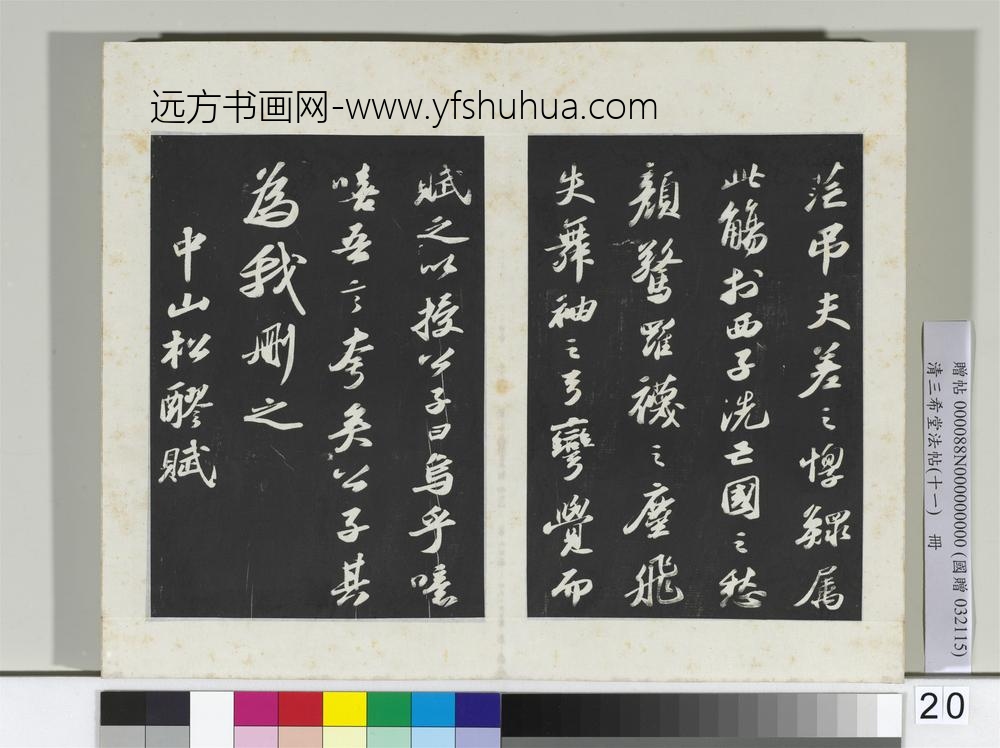 远方书画网-www.yfshuhua.com
茫吊夫差之惸鰥属
此觴扵西子洗亡國之愁
顏驚羅襪之塵飛
失舞袖之弓彎覺而
賦之以授公子曰烏乎噫
嘻吾言夸矣公子其
為我刪之
中山松醪賦
贈帖 000088N000000000 (國贈 032115)
清三希堂法帖(十一) 冊
20